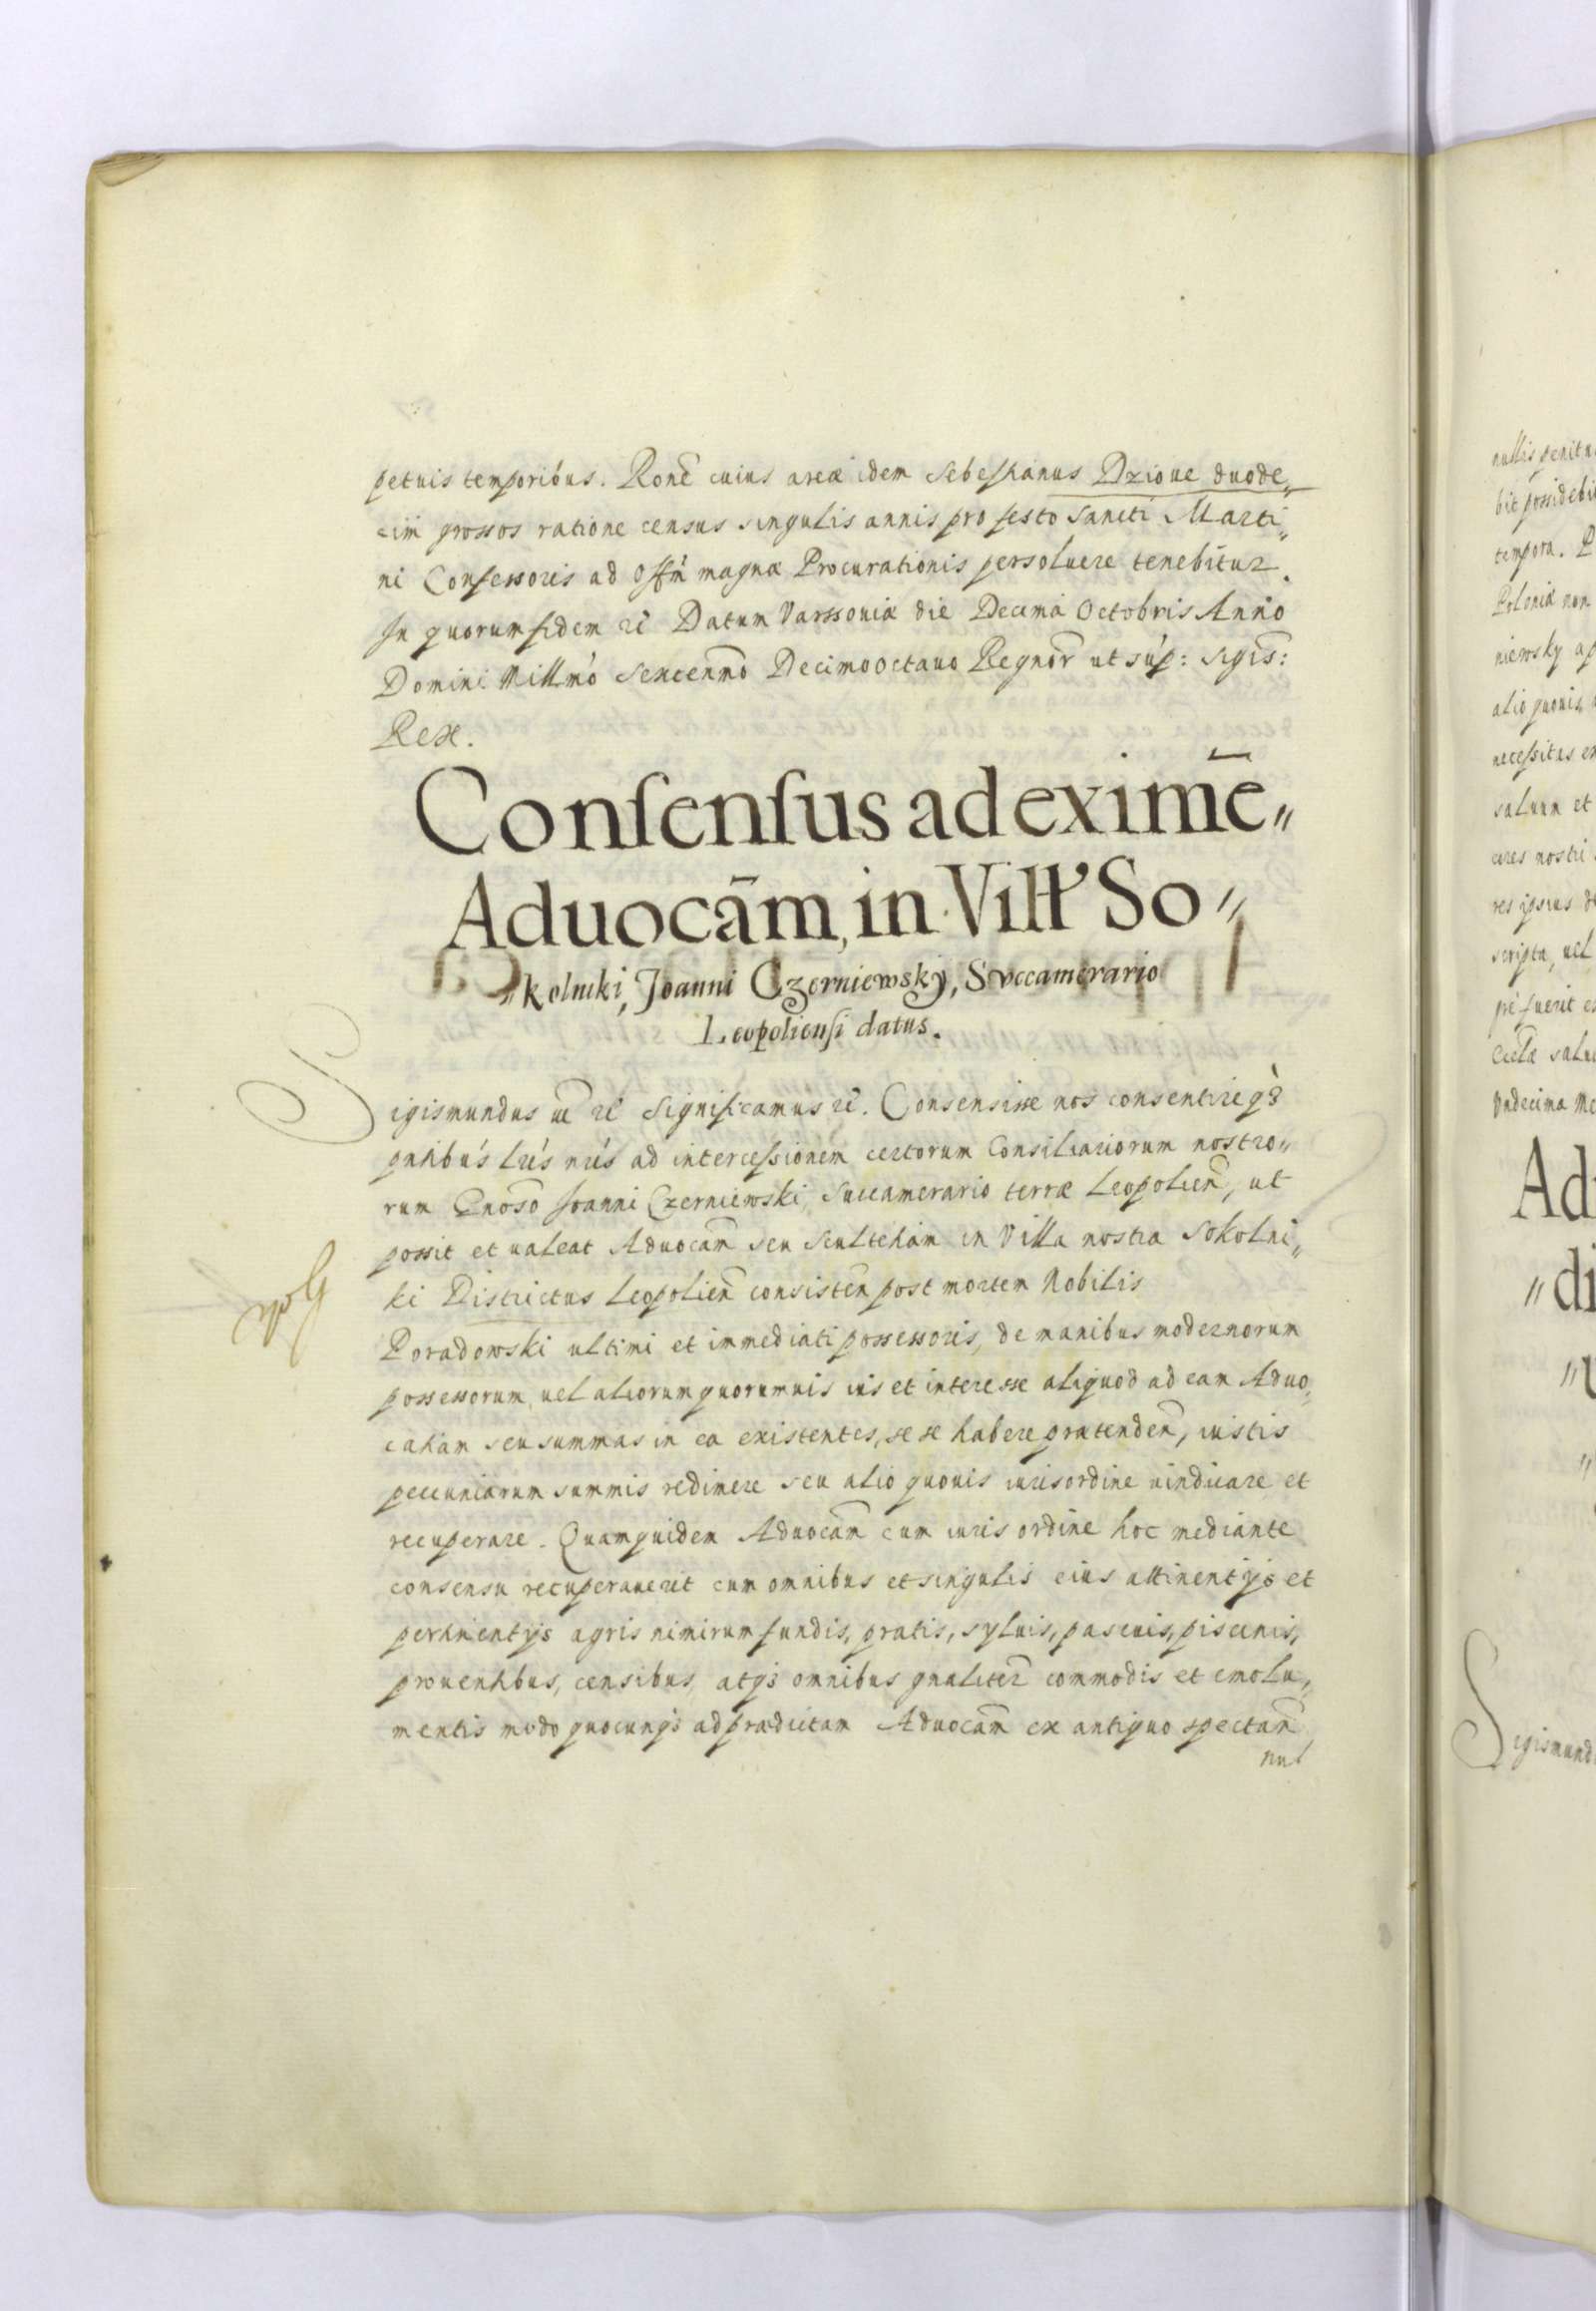 petuis temporibus. Ronẽ cuius areæ idem Sebestianus Dzioue duode„
cim grossos ratione census singulis annis pro festo Sancti Marti„
ni Confessoris ad Offm̃ magnæ Procurationis persoluere tenebitur.
In quorum fidem zc̃ Datum Varssouiæ die Decima Octobris Anno
Domini Millm̃o Sexcenm̃o Decimooctauo Regnor̃ ut sup: Sigis:
Rex.
Conſenſus ad eximẽ„
Aduocãm, in Villa So„
„kolniki, Joanni Czerniewsky, Succamerario
Leopolienſi datus.
Sigismundus zc̃ zc̃ Significamus zc̃. Consensisse nos consentireq3
pntibus lr̃is nr̃is ad intercessionem certorum Consiliariorum nostro„
rum Gnoso Joanni Czerniewski, Succamerario terræ Leopolieñ, ut
possit et ualeat Aduocam̃ seu Scultetiam in Villa nostra Sokolni„
ki Districtus Leopolieñ consisteñ post mortem Nobilis
Poradowski ultimi et immediati possessoris, de manibus modernorum
possessorum, uel aliorum quorumuis ius et interesse aliquod ad eam Aduo„
catiam seu summas in ea existentes, se se habere prætendeñ, iustis
pecuniarum summis redimere seu alio quouis iuris ordine uindicare et
recuperare. Quamquidem Aduocam̃ cum iuris ordine hoc mediante
consensu recuperauerit cum omnibus et singulis eius attinentijs et
pertinentijs agris nimirum fundis, pratis, syluis, pascuis, piscinis,
prouentibus, censibus, atq3 omnibus gnaliter commodis et emolu„
mentis modo quocunq3 ad prædictam Aduocam̃ ex antiquo spectañ,
nul
nullis penitu
bit possidebi
tempora. P
Poloniæ non
niewsky ap
alio quouis
necessitas ex
saluum et
cres nostri
res ipsius de
scripta, uel
fuerit es
salu
Vndecima Me
Ad
„di
Sigismund